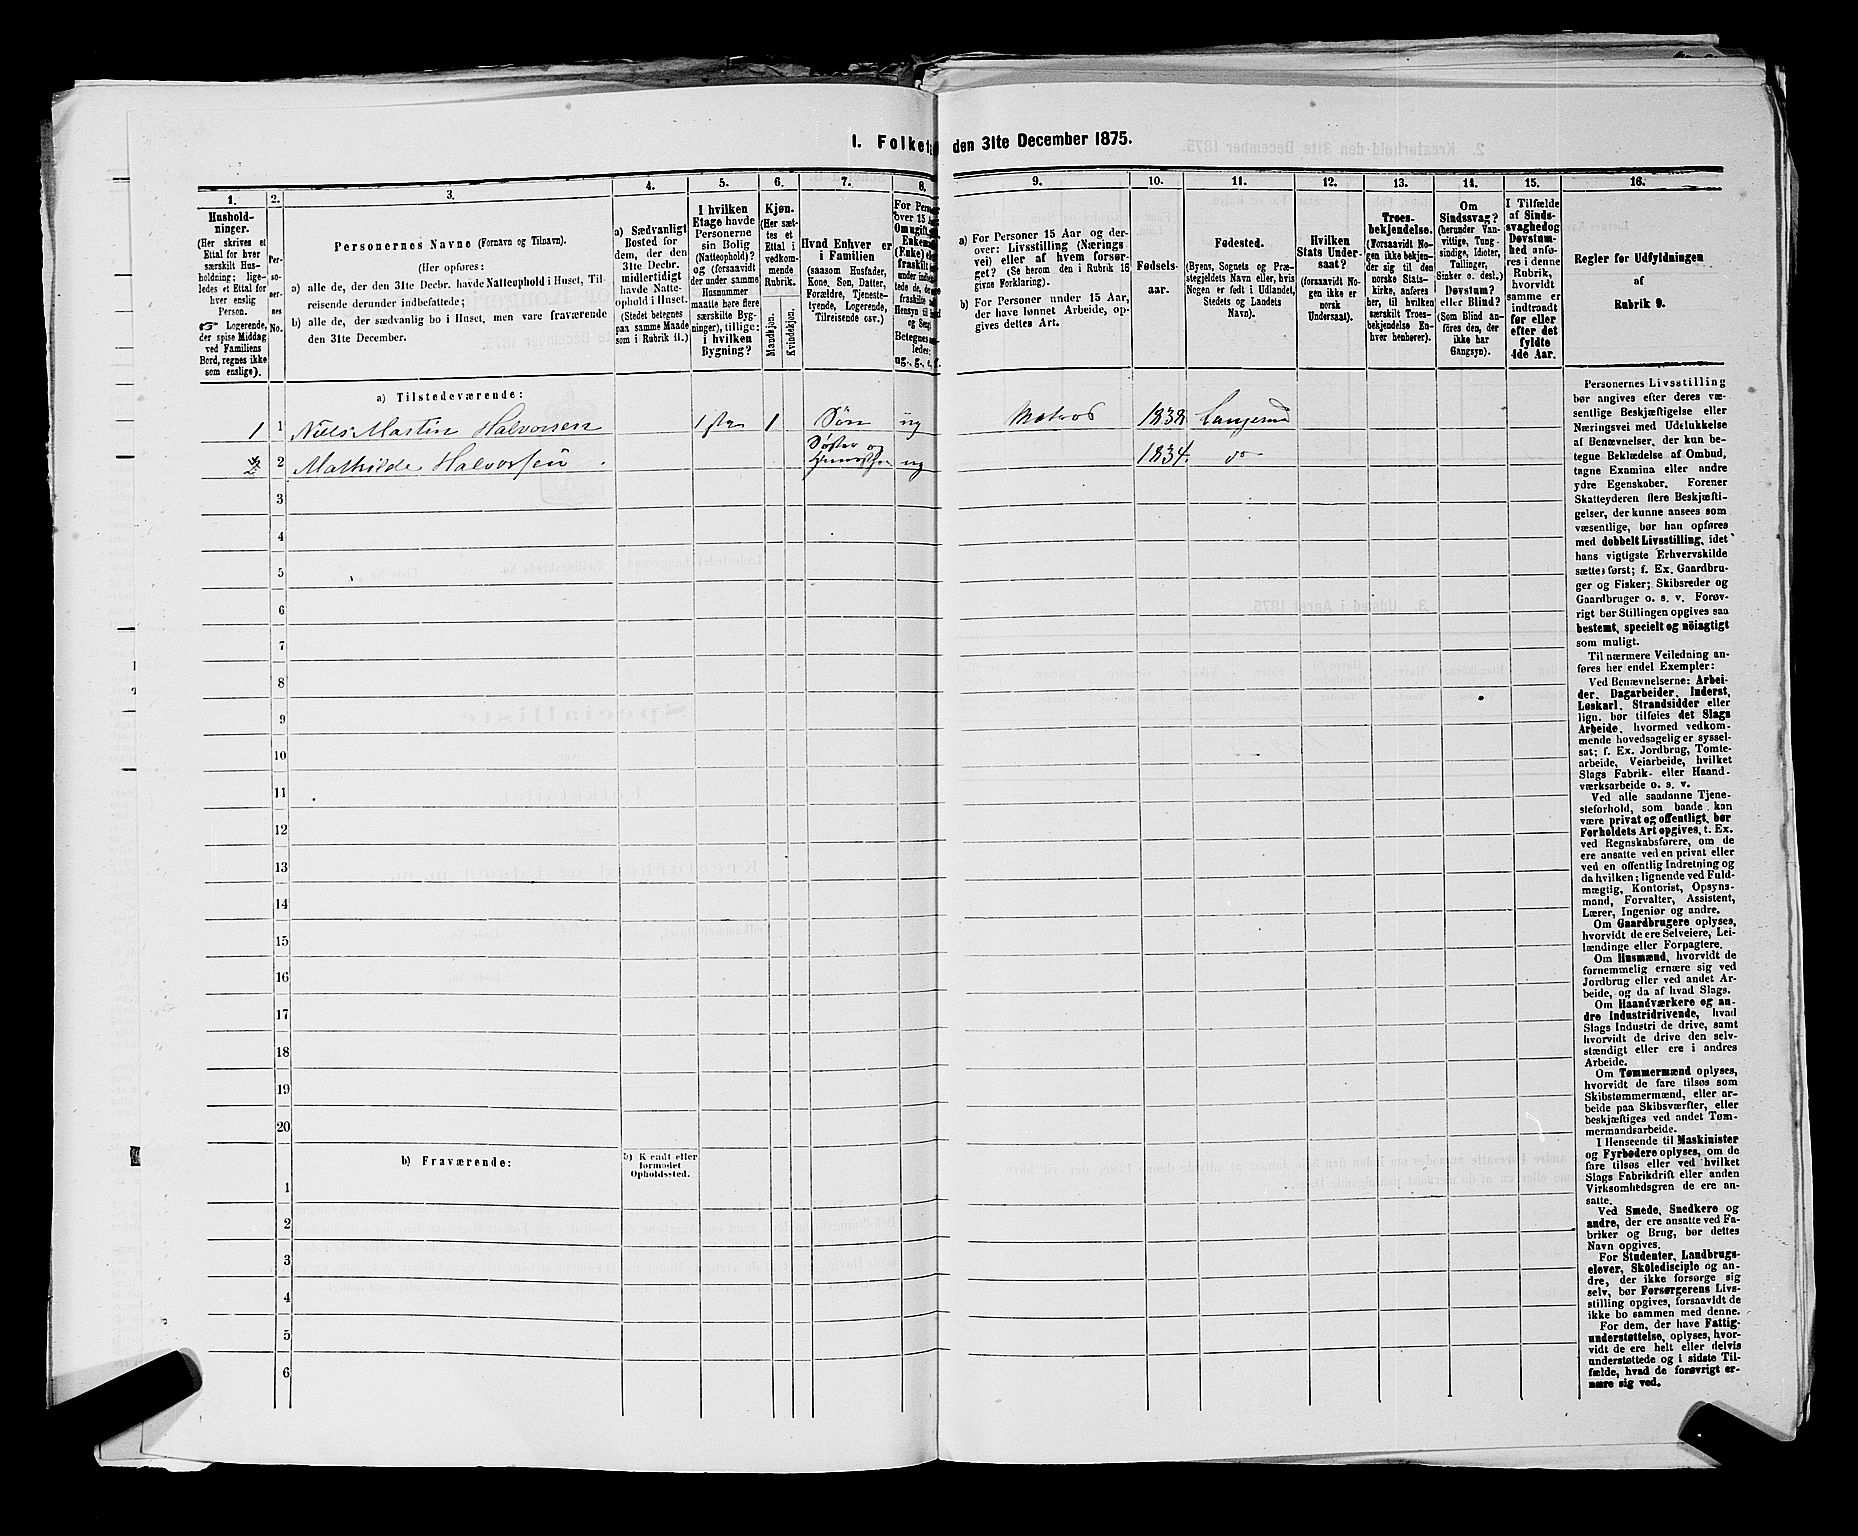 1. Folket
den 31te December 1875.
1.
2.
3.
4.
5.
6.
7.
8.
9.
10.
11.
12.
13.
14.
15.
16.
Hushold-
ninger.
(Her skrives et
Ettal for hver
særskilt Hus-
holdning; lige-
ledes et Ettal for
hver enslig
Person.
☞ Logerende,
der spise Middag
ved Familiens
Bord, regnes ikke
som enslige).
Per-
so-
ner-
nes
No.
Personernes Navne (Fornavn og Tilnavn).
(Her opføres:
a) alle de, der den 31te Decbr. havde Natteophold i Huset, Til-
reisende derunder indbefattede;
b) alle de, der sædvanlig bo i Huset, men vare fraværende
den 31te December.
a) Sædvanligt
Bosted for
dem, der den
31te Decbr.
midlertidigt
havde Natte-
ophold i Huset.
(Stedet betegnes
paa samme Maade
som i Rubrik 11.)
I hvilken
Etage havde
Personerne
sin Bolig
(Natteophold)?
og (forsaavidt
der under samme
Husnummer
maatte høre flere
særskilte Byg-
ninger), tillige:
i hvilken
Bygning?
Kjøn.
(Her sæt-
tes et
Ettal i
vedkom-
mende
Rubrik.
Mandkjøn.
Kvindekjøn.
Hvad Enhver er
i Familien
(saasom Husfader,
Kone, Søn, Datter,
Forældre, Tjeneste-
tyende, Logerende,
Tilreisende osv.)
For Pers
over 15 A
Om ugift
Enkem
(Enke) el
fraskilt
ledes:
ug., g., e., f.
a) For Personer 15 Aar og der-
over: Livsstilling (Nærings
vei) eller af hvem forsør-
get? (Se herom den i Rubrik 16
givne Forklaring).
b) For Personer under 15 Aar,
der have lønnet Arbeide, op-
gives dettes Art.
Fødsels-
aar.
Fødested.
(Byens, Sognets og Præ-
stegjeldets Navn eller, hvis
Nogen er født i Udlandet,
Stedets og Landets
Navn).
Hvilken
Stats Under-
saat?
(forsaavidt No-
gen ikke er
norsk
Undersaat).
Troes-
bekjendelse.
(Forsaavidt No-
gen ikke bekjen-
der sig til den
norske Stats-
kirke, anføres
her, til hvilken
særskilt Troes-
bekjendelse En-
hver henhører).
Om
Sindssvag?
(herunder Van-
vittige, Tung-
sindige, Idioter,
Tullinger,
Sinker o. desl.)
Døvstum?
eller Blind?
(Som Blind an-
føres den, der
ikke har
Gangsyn).
I Tilfælde
af Sinds-
svaghed og
Døvstum-
hed anfø-
res i denne
Rubrik,
hvorvidt
samme er
indtraadt
før eller
efter det
fyldte
4de Aar.
Regler for Udfyldningen
af
Rubrik 9.
a) Tilstedeværende:
1 1 Niels Martin Halvorsen 1ste 1 Søn ug Matros 1838 Langesund
2 2 Mathilde Halvorsen Søster og ug 1834. do
3
4
5
6
7
8
9
10
11
12
13
14
15
16
17
18
19
20
b) Fraværende:
b) Kjendt eller
formodet
Opholdssted.
1
2
3
4
5
6
Personernes Livsstilling
bør angives efter deres væ-
sentlige Beskjæftigelse eller
Næringsvei med Udelukkelse
af Benævnelser, der kun be-
tegne Beklædelse af Ombud,
tagne Examina eller andre
ydre Egenskaber. Forener
Skatteyderen flere Beskjæfti-
gelser, der kunne ansees som
væsentlige, bør han opføres
med dobbelt Livsstilling, idet
hans vigtigste Erhvervskilde
sættes først; f. Ex. Gaardbru-
ger og Fisker; Skibsreder og
Gaardbruger o. s. v. Forøv-
rigt bør Stillingen opgives saa
bestemt, specielt og nöiagtigt
som muligt.
Til nærmere Veiledning an-
føres her endel Exempler:
Ved Benævnelserne: Arbei-
der, Dagarbeider, Inderst,
Løskarl, Strandsidder eller
lign. bør tilføies det Slags
Arbeide, hvormed vedkom-
mende hovedsagelig er syssel-
sat; f. Ex. Jordbrug, Tomte-
arbeide, Veiarbeide, hvilket
Slags Fabrik- eller Haand-
værksarbeide o. s. v.
Ved alle saadanne Tjene-
steforhold, som baade kan
være privat og offentligt, bør
Forholdets Art opgives, t. Ex.
ved Regnskabsførere, om de
ere ansatte ved en privat eller
ved en offentlig Indretning og
da hvilken; lignende ved Fuld-
mægtig, Kontorist, Opsyns-
mand, Forvalter, Assistent,
Lærer, Ingeniør og andre.
Om Gaardbrugere oplyses,
hvorvidt de ere Selveiere, Lei-
lændinge eller Forpagtere.
Om Husmænd, hvorvidt de
fornemmelig ernære sig ved
Jordbrug eller ved andet Ar-
beide, og da af hvad Slags.
Om Haandværkere og an-
dre Industridrivende, hvad
Slags Industri de drive, samt
hvorvidt de drive den selv-
stændigt eller ere i andres
Arbeide.
Om Tømmermænd oplyses,
hvorvidt de fare tilsøs som
Skibstømmermænd, eller ar-
beide paa Skibsværfter, eller
beskjæftiges ved andet Tøm-
mermandsarbeide.
I Henseende til Maskinister
og Fyrbødere oplyses, om de
fare tilsøs eller ved hvilket
Slags Fabrikdrift eller anden
Virksomhedsgren de ere an-
satte.
Ved Smede, Snedkere og
andre, der ere ansatte ved Fa-
briker og Brug, bør dettes
Navn opgives.
For Studenter, Landbrugs-
elever, Skoledisciple og an-
dre, der ikke forsørge sig
selv, bør Forsørgerens Livs-
stilling opgives, forsaavidt de
ikke bo sammen med denne.
For dem, der have Fattig-
understøttelse, oplyses, hvor-
vidt de ere helt eller delvis
understøttede og i sidste Til-
fælde, hvad de forøvrigt er-
nære sig ved.